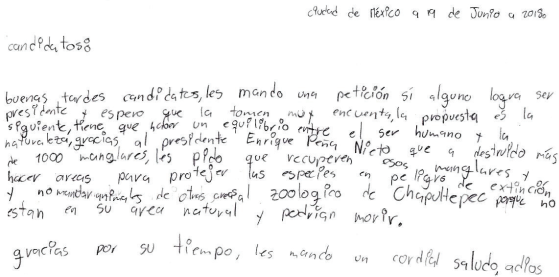 ciudad de México a 19 de Junio a 2018.
candidatos:
buenas tardes candidatos, les mando una petición si alguno logra ser
presidente y espero que la tomen muy encuenta, la propuesta es la
siguiente, tiene que haber un equilibrio entre el ser humano y la
naturaleza, gracias al presidente Enrique Peña Nieto que a destruido más
de 1000 manglares, les pido que recuperen esos manglares y
hacer areas para protejer las especies en peligro de extinción
y no mandar animales de otras areas al zoologico de Chapultepec porque no
estan en su area natural y podrían morir.
gracias por su tiempo, les mando un cordial saludo, adios